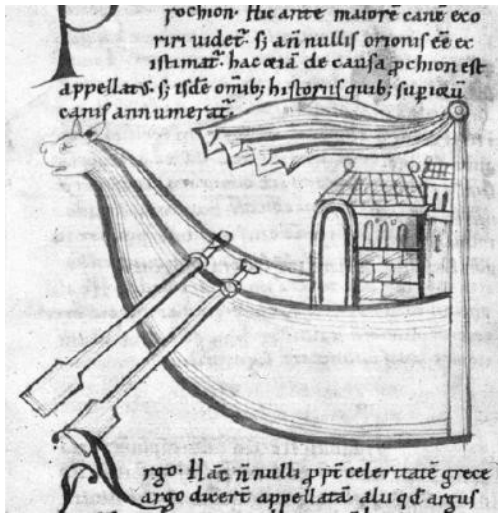 Prochion. Hic ante maiorē canē exo
riri uidet᷑. sꝫ añ nullis orionis eē ex
istimat᷑. hac &iā de causa ꝓchion est
appellat᷒. sꝫ isdē omibꝫ historiis quibꝫ supiꝰ
canis annumerat᷑.
Argo. Hāc ñ nulli ꝓpt̄ celeritatē grece
argo dicer̄t appellatā. alii qđ argus